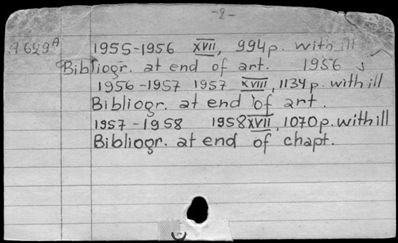 -2-
A629A 1955-1956 XVII, 994p. with ill
Bibliogr. at end of art. 1956
1956-1957 1957 XVIII, 1134p. with ill
Bibliogr. at end of art.
1957-1958 1958 XVII, 1070p. with ill
Bibliogr. at end of chapt.